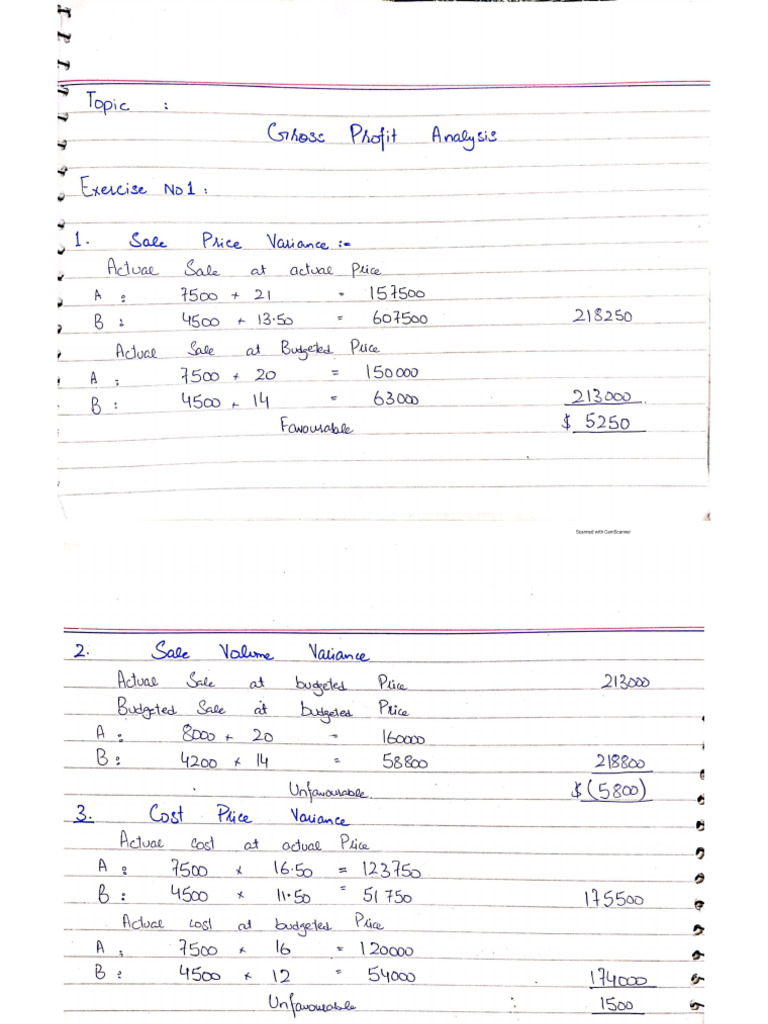 Topic :
Gross Profit Analysis
Exercise No1 :
1. Sale Price Variance :-
Actual Sale at actual Price
A : 7500 + 21 = 157500
B : 4500 + 13.50 = 607500 218250
Actual Sale at Budgeted Price
A : 7500 + 20 = 150000
B : 4500 + 14 = 63000 213000
Favourable $ 5250
Scanned with CamScanner
2. Sale Volume Variance
Actual Sale at budgeted Price 213000
Budgeted Sale at budgeted Price
A : 8000 + 20 = 160000
B : 4200 * 14 = 58800 218800
Unfavourable $(5800)
3. Cost Price Variance
Actual cost at actual Price
A : 7500 * 16.50 = 123750
B : 4500 * 11.50 = 51750 175500
Actual cost at budgeted Price
A : 7500 * 16 = 120000
B : 4500 * 12 = 54000 174000
Unfavourable : 1500